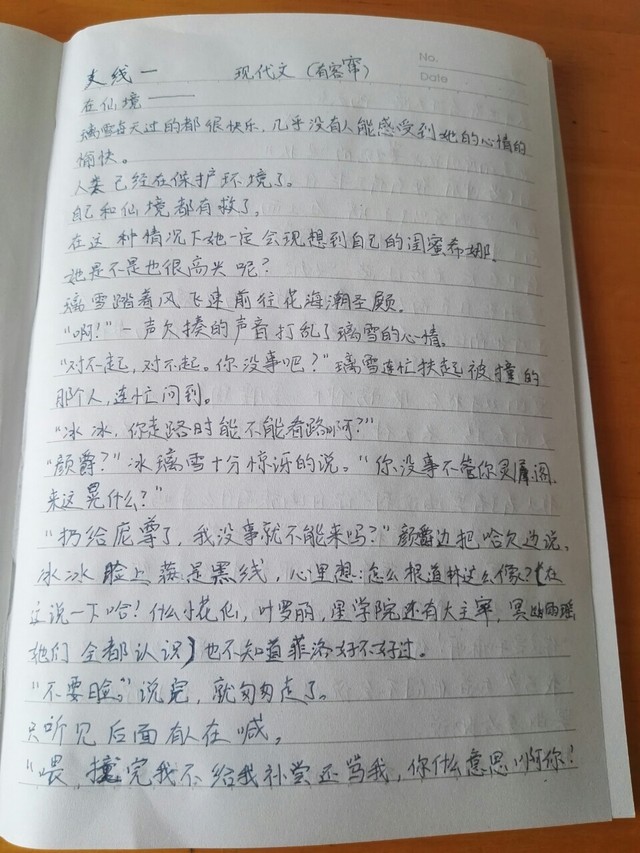 No.
支线一 现代文(有客串)
Date
在仙境——
璃雪每天过的都很快乐,几乎没有人能感受到她的心情的
愉快。
人类已经在保护环境了。
自己和仙境都有救了,
在这种情况下她一定会现想到自己的闺蜜希娜。
她是不是也很高兴呢?
璃雪踏着风飞速前往花海潮圣殿。
“啊!”一声欠揍的声音打乱了璃雪的心情。
“对不起,对不起。你没事吧?”璃雪连忙扶起被撞的
那个人,连忙问到。
“冰冰,你走路时能不能看路啊?”
“颜爵?”冰璃雪十分惊讶的说。“你没事不管你灵犀阁
来这晃什么?”
“扔给庞尊了,我没事就不能来吗?”颜爵边把哈欠边说,
冰冰脸上蒜是黑线,心里想:怎么根道林这么像?(在
这说一下哈!什么小花仙,叶罗丽,星学院还有大主宰,冥幽雨瑶
她们全都认识)也不知道菲洛好不好过。
“不要脸。”说完,就匆匆走了。
只听见后面有人在喊,
“喂,撞完我不给我补尝还骂我,你什么意思啊你!